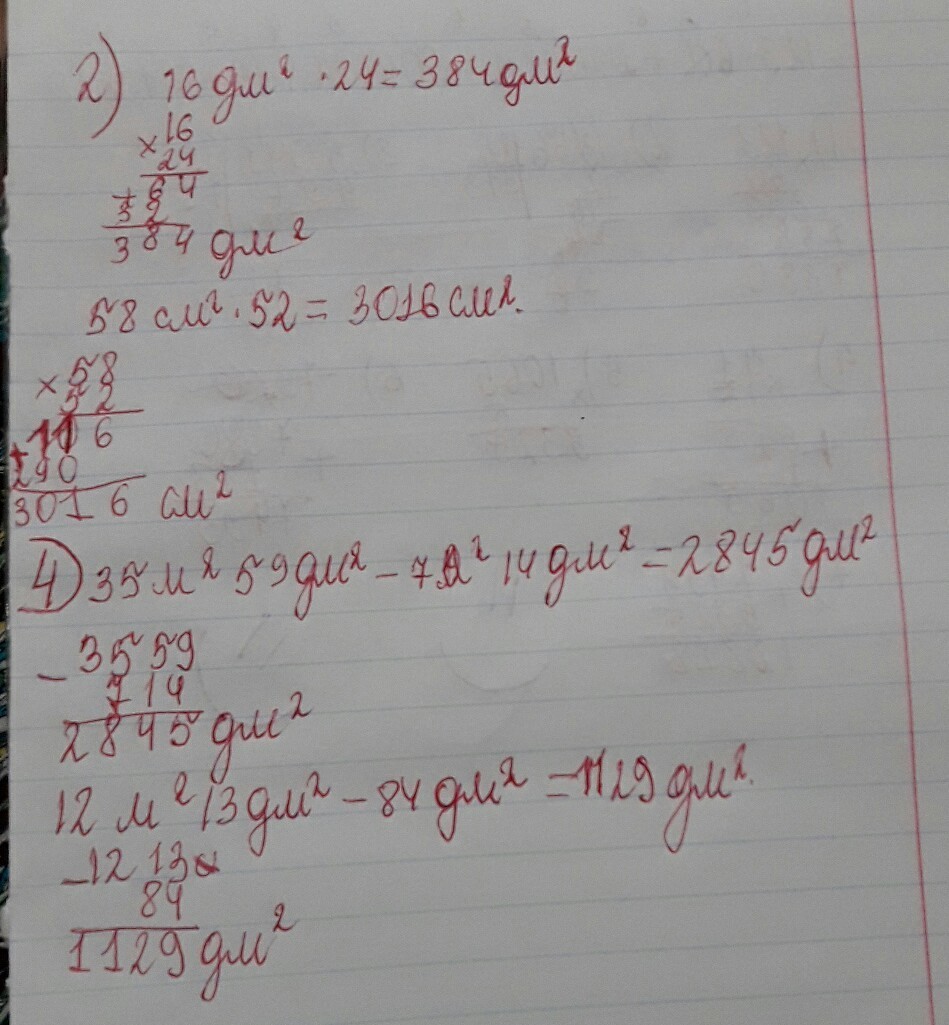 2) 16 дм² · 24 = 384 дм²
× 16
24
+ 64
32
384 дм²
58 см² · 52 = 3016 см².
× 58
52
+ 116
290
3016 см²
4) 35 м² 59 дм² – 7 м² 14 дм² = 2845 дм²
– 3559
714
2845 дм²
12 м² 13 дм² – 84 дм² = 1129 дм².
– 1213
84
1129 дм²